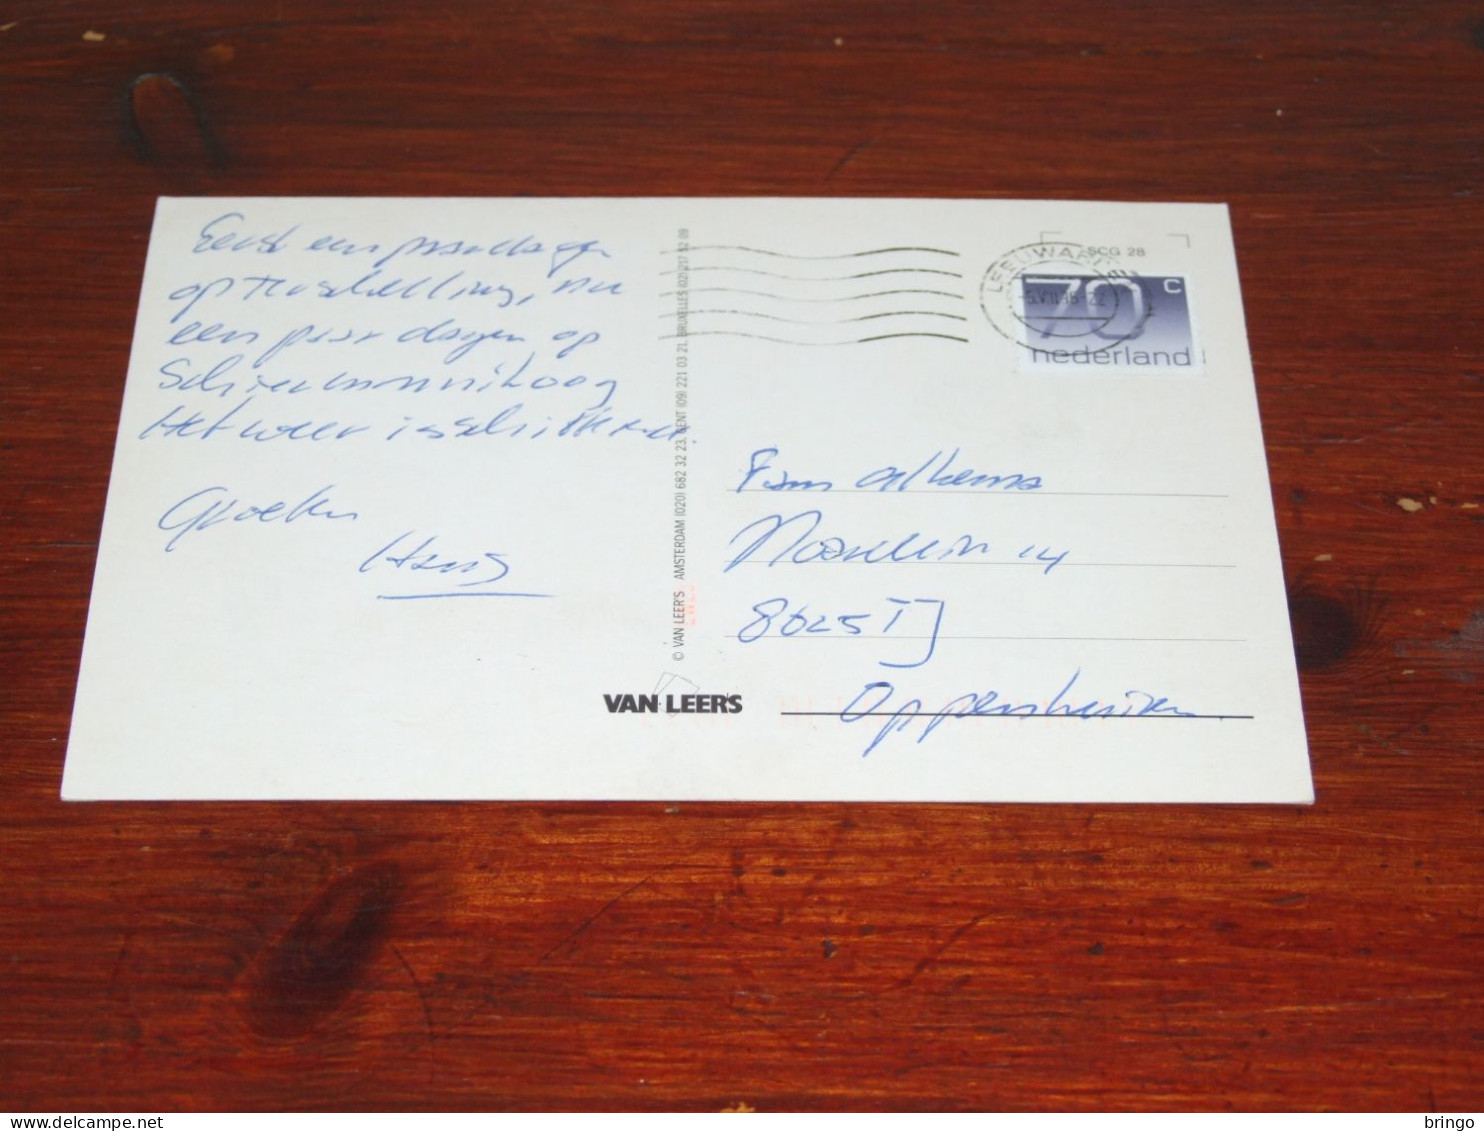 Eerst een paar dagen
op Terschelling, nu
een paar dagen op
Schiermonnikoog
Het weer is schitterend.
Groeten
Hans
© VAN LEER'S AMSTERDAM (020) 682 32 23, GENT (09) 221 03 21, BRUXELLES (02) 217 52 09
VAN LEER'S
SCG 28
LEEUWARDEN
70 c
nederland
Fam Alkema
14
8625 TJ
Oppenhuizen.
bringo